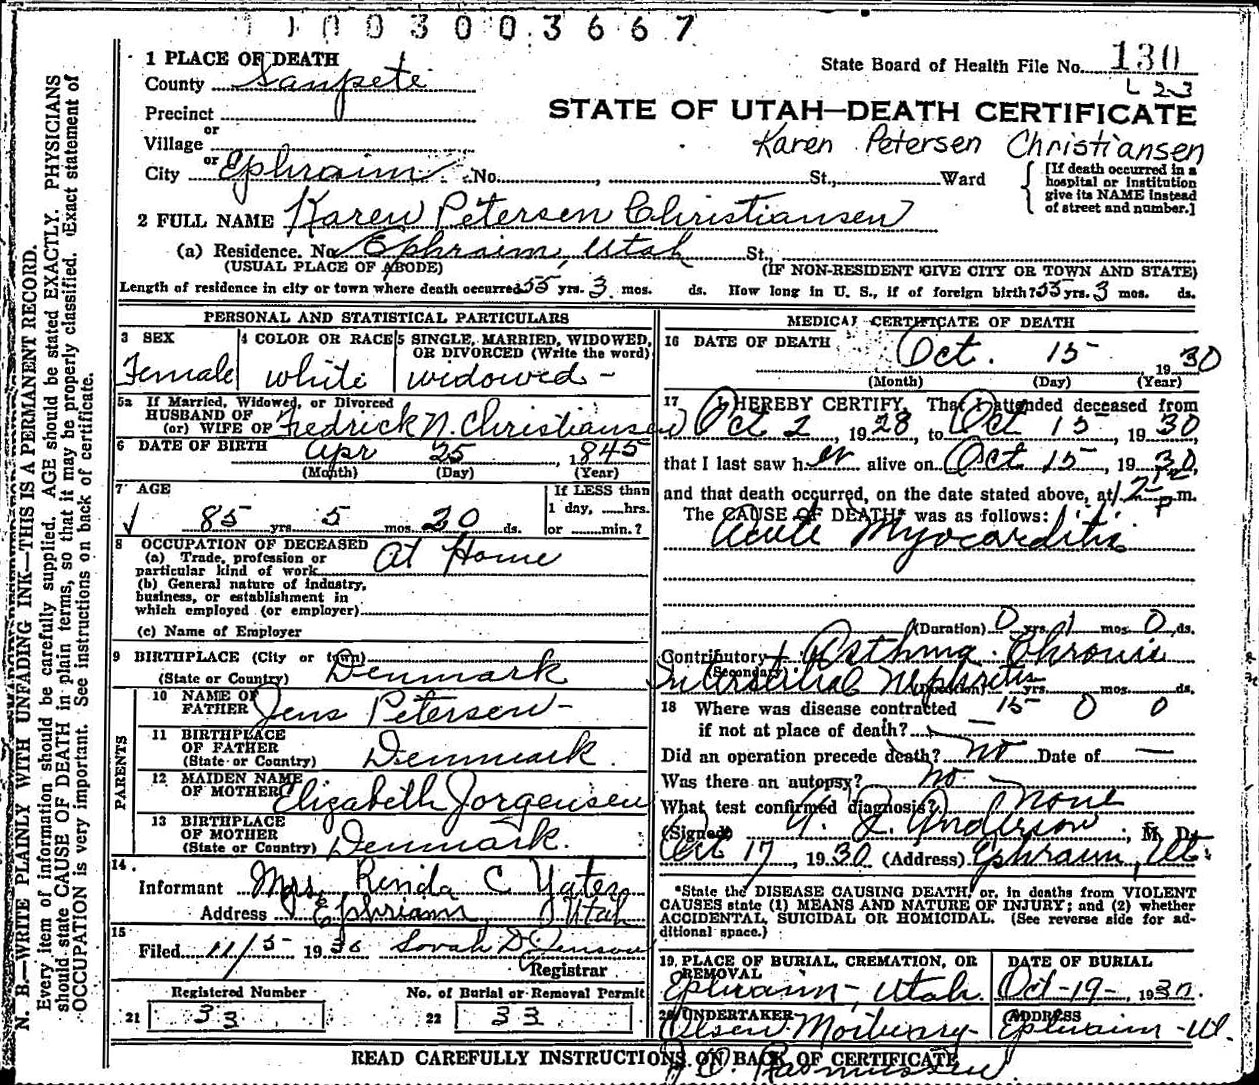 1003003667
1 PLACE OF DEATH
State Board of Health File No. 130
County Sanpete
L 23
Precinct
STATE OF UTAH—DEATH CERTIFICATE
or
Village
Karen Petersen Christiansen
or
City Ephraim No. St., Ward
[If death occurred in a
hospital or institution
give its NAME instead
of street and number.]
2 FULL NAME Karen Petersen Christiansen
(a) Residence. No. Ephraim, Utah St.,
(USUAL PLACE OF ABODE) (IF NON-RESIDENT GIVE CITY OR TOWN AND STATE)
Length of residence in city or town where death occurred 55 yrs. 3 mos. ds. How long in U. S., if of foreign birth? 55 yrs. 3 mos. ds.
PERSONAL AND STATISTICAL PARTICULARS
3 SEX
Female
4 COLOR OR RACE
white
5 SINGLE, MARRIED, WIDOWED,
OR DIVORCED (Write the word)
widowed -
5a If Married, Widowed, or Divorced
HUSBAND OF
(or) WIFE OF Fredrick N. Christiansen
6 DATE OF BIRTH Apr 25, 1845
(Month) (Day) (Year)
7 AGE
If LESS than
1 day, hrs.
85 yrs. 5 mos. 20 ds. or min.?
8 OCCUPATION OF DECEASED
(a) Trade, profession or
particular kind of work At Home
(b) General nature of industry,
business, or establishment in
which employed (or employer)
(c) Name of Employer
9 BIRTHPLACE (City or town)
(State or Country) Denmark
PARENTS
10 NAME OF
FATHER Jens Petersen -
11 BIRTHPLACE
OF FATHER
(State or Country) Denmark.
12 MAIDEN NAME
OF MOTHER Elizabeth Jorgensen
13 BIRTHPLACE
OF MOTHER
(State or Country) Denmark.
14
Informant Mrs. Rinda C.
Address Ephriam, Utah
15
Filed 11/5 1930
Registrar
Registered Number
21 33
No. of Burial or Removal Permit
22 33
MEDICAL CERTIFICATE OF DEATH
16 DATE OF DEATH Oct. 15 1930
(Month) (Day) (Year)
17 I HEREBY CERTIFY, That I attended deceased from
Oct 2, 1928, to Oct 15, 1930
that I last saw her alive on Oct 15, 1930,
and that death occurred, on the date stated above, at 12 p m.
The CAUSE OF DEATH* was as follows:
Acute Myocarditis
(Duration) 0 yrs. 1 mos. 0 ds.
Contributory Asthma. Chronic
(Secondary)
Interstitial Nephritis
(Duration) yrs. mos. ds.
15 0 0
18 Where was disease contracted
if not at place of death? —
Did an operation precede death? no Date of —
Was there an autopsy? no
What test confirmed diagnosis? none
(Signed) Anderson, M. D.
Oct 17, 1930 (Address) Ephraim, Ut.
*State the DISEASE CAUSING DEATH, or, in deaths from VIOLENT
CAUSES state (1) MEANS AND NATURE OF INJURY; and (2) whether
ACCIDENTAL, SUICIDAL OR HOMICIDAL. (See reverse side for ad-
ditional space.)
19 PLACE OF BURIAL, CREMATION, OR
REMOVAL
Ephraim, Utah.
DATE OF BURIAL
Oct-19-, 1930.
20 UNDERTAKER
Olsen Mortuary-
ADDRESS
Ephraim - Ut.
Rasmussen.
READ CAREFULLY INSTRUCTIONS ON BACK OF CERTIFICATE
N. B.—WRITE PLAINLY WITH UNFADING INK—THIS IS A PERMANENT RECORD.
Every item of information should be carefully supplied. AGE should be stated EXACTLY. PHYSICIANS
should state CAUSE OF DEATH in plain terms, so that it may be properly classified. Exact statement of
OCCUPATION is very important. See instructions on back of certificate.